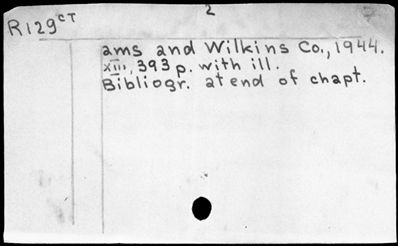 2
R129CT
ams and Wilkins Co., 1944.
XIII, 393 p. with ill.
Bibliogr. at end of chapt.